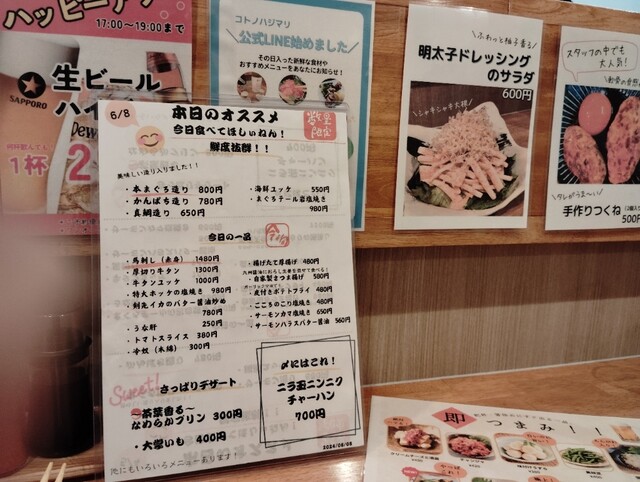 ハッピーア
17:00～19:00まで
SAPPORO
生ビール
ハイ
何杯飲んでも
1杯
コトノハジマリ
公式LINE始めました
その日入った新鮮な食材や
おすすめメニューをあなたにお知らせ！
ふわっと柚子香る
明太子ドレッシング
のサラダ
600円
シャキシャキ大根
スタッフの中でも
大人気！
タレがうま〜い！
手作りつくね
500円
6/8
本日のオススメ
数量
限定
今日食べてほしいねん！
鮮度抜群！！
美味しい造り入りました！！
・本まぐろ造り 800円
・かんぱち造り 780円
・真鯛造り 650円
・海鮮ユッケ 550円
・まぐろテール岩塩焼き
980円
今日の一品
・馬刺し（赤身） 1480円
・厚切り牛タン 1300円
・牛タンユッケ 1000円
・特大ホッケの塩焼き 980円
・剣先イカのバター醤油炒め
780円
・うな肝 250円
・トマトスライス 380円
・冷奴（木綿） 300円
・揚げたて厚揚げ 480円
・自家製さつま揚げ 580円
・皮付きポテトフライ 480円
・こころのこり塩焼き 480円
・サーモンカマ塩焼き 650円
・サーモンハラスバター醤油 560円
Sweet!
さっぱりデザート
茶葉香る～
なめらかプリン 300円
・大学いも 400円
〆にはこれ！
ニラ玉ニンニク
チャーハン
700円
2024/06/08
他にもいろいろメニューあります！
即
つまみ